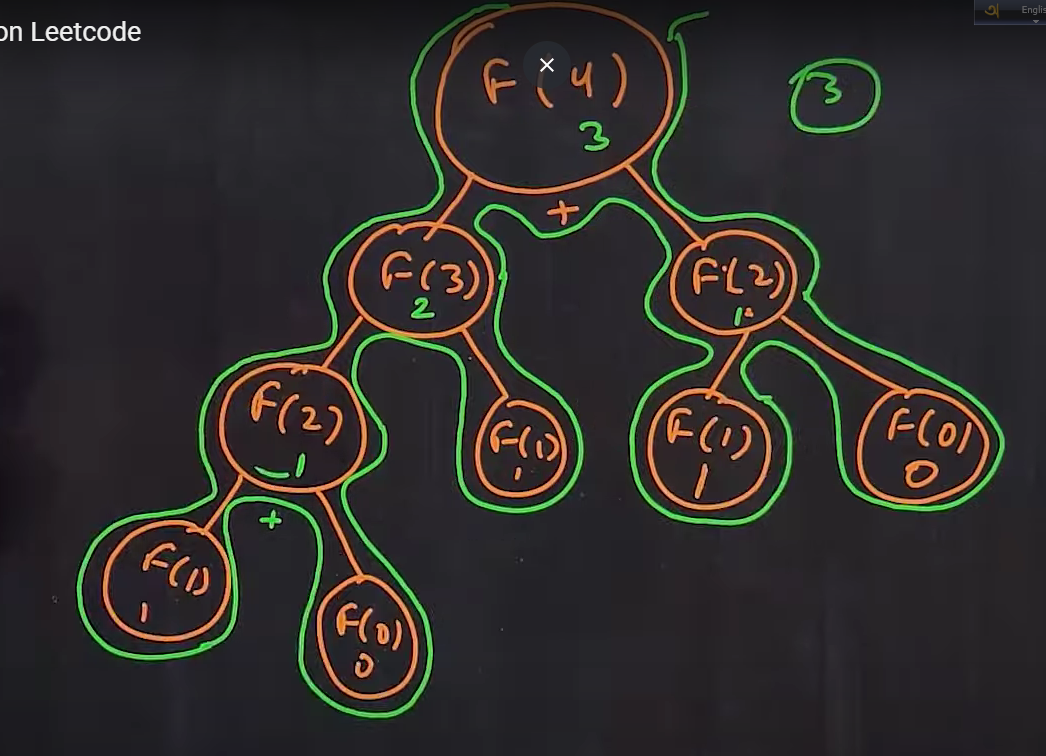 on Leetcode
অ Englis
F(4)
3
3
+
F(3)
2
F(2)
1
F(2)
1
F(1)
1
F(1)
1
F(0)
0
+
F(1)
1
F(0)
0